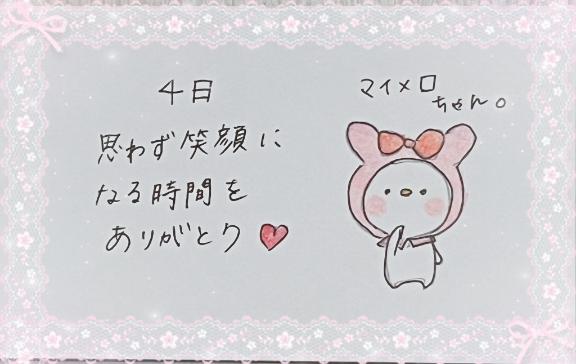 4日
思わず笑顔に
なる時間を
ありがとう
マイメロ
ちゃん。